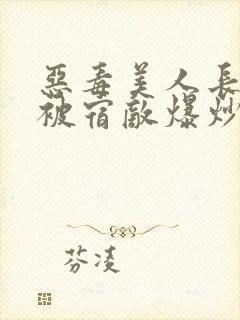 惡毒美人長
被宿敵爆炒
芬凌